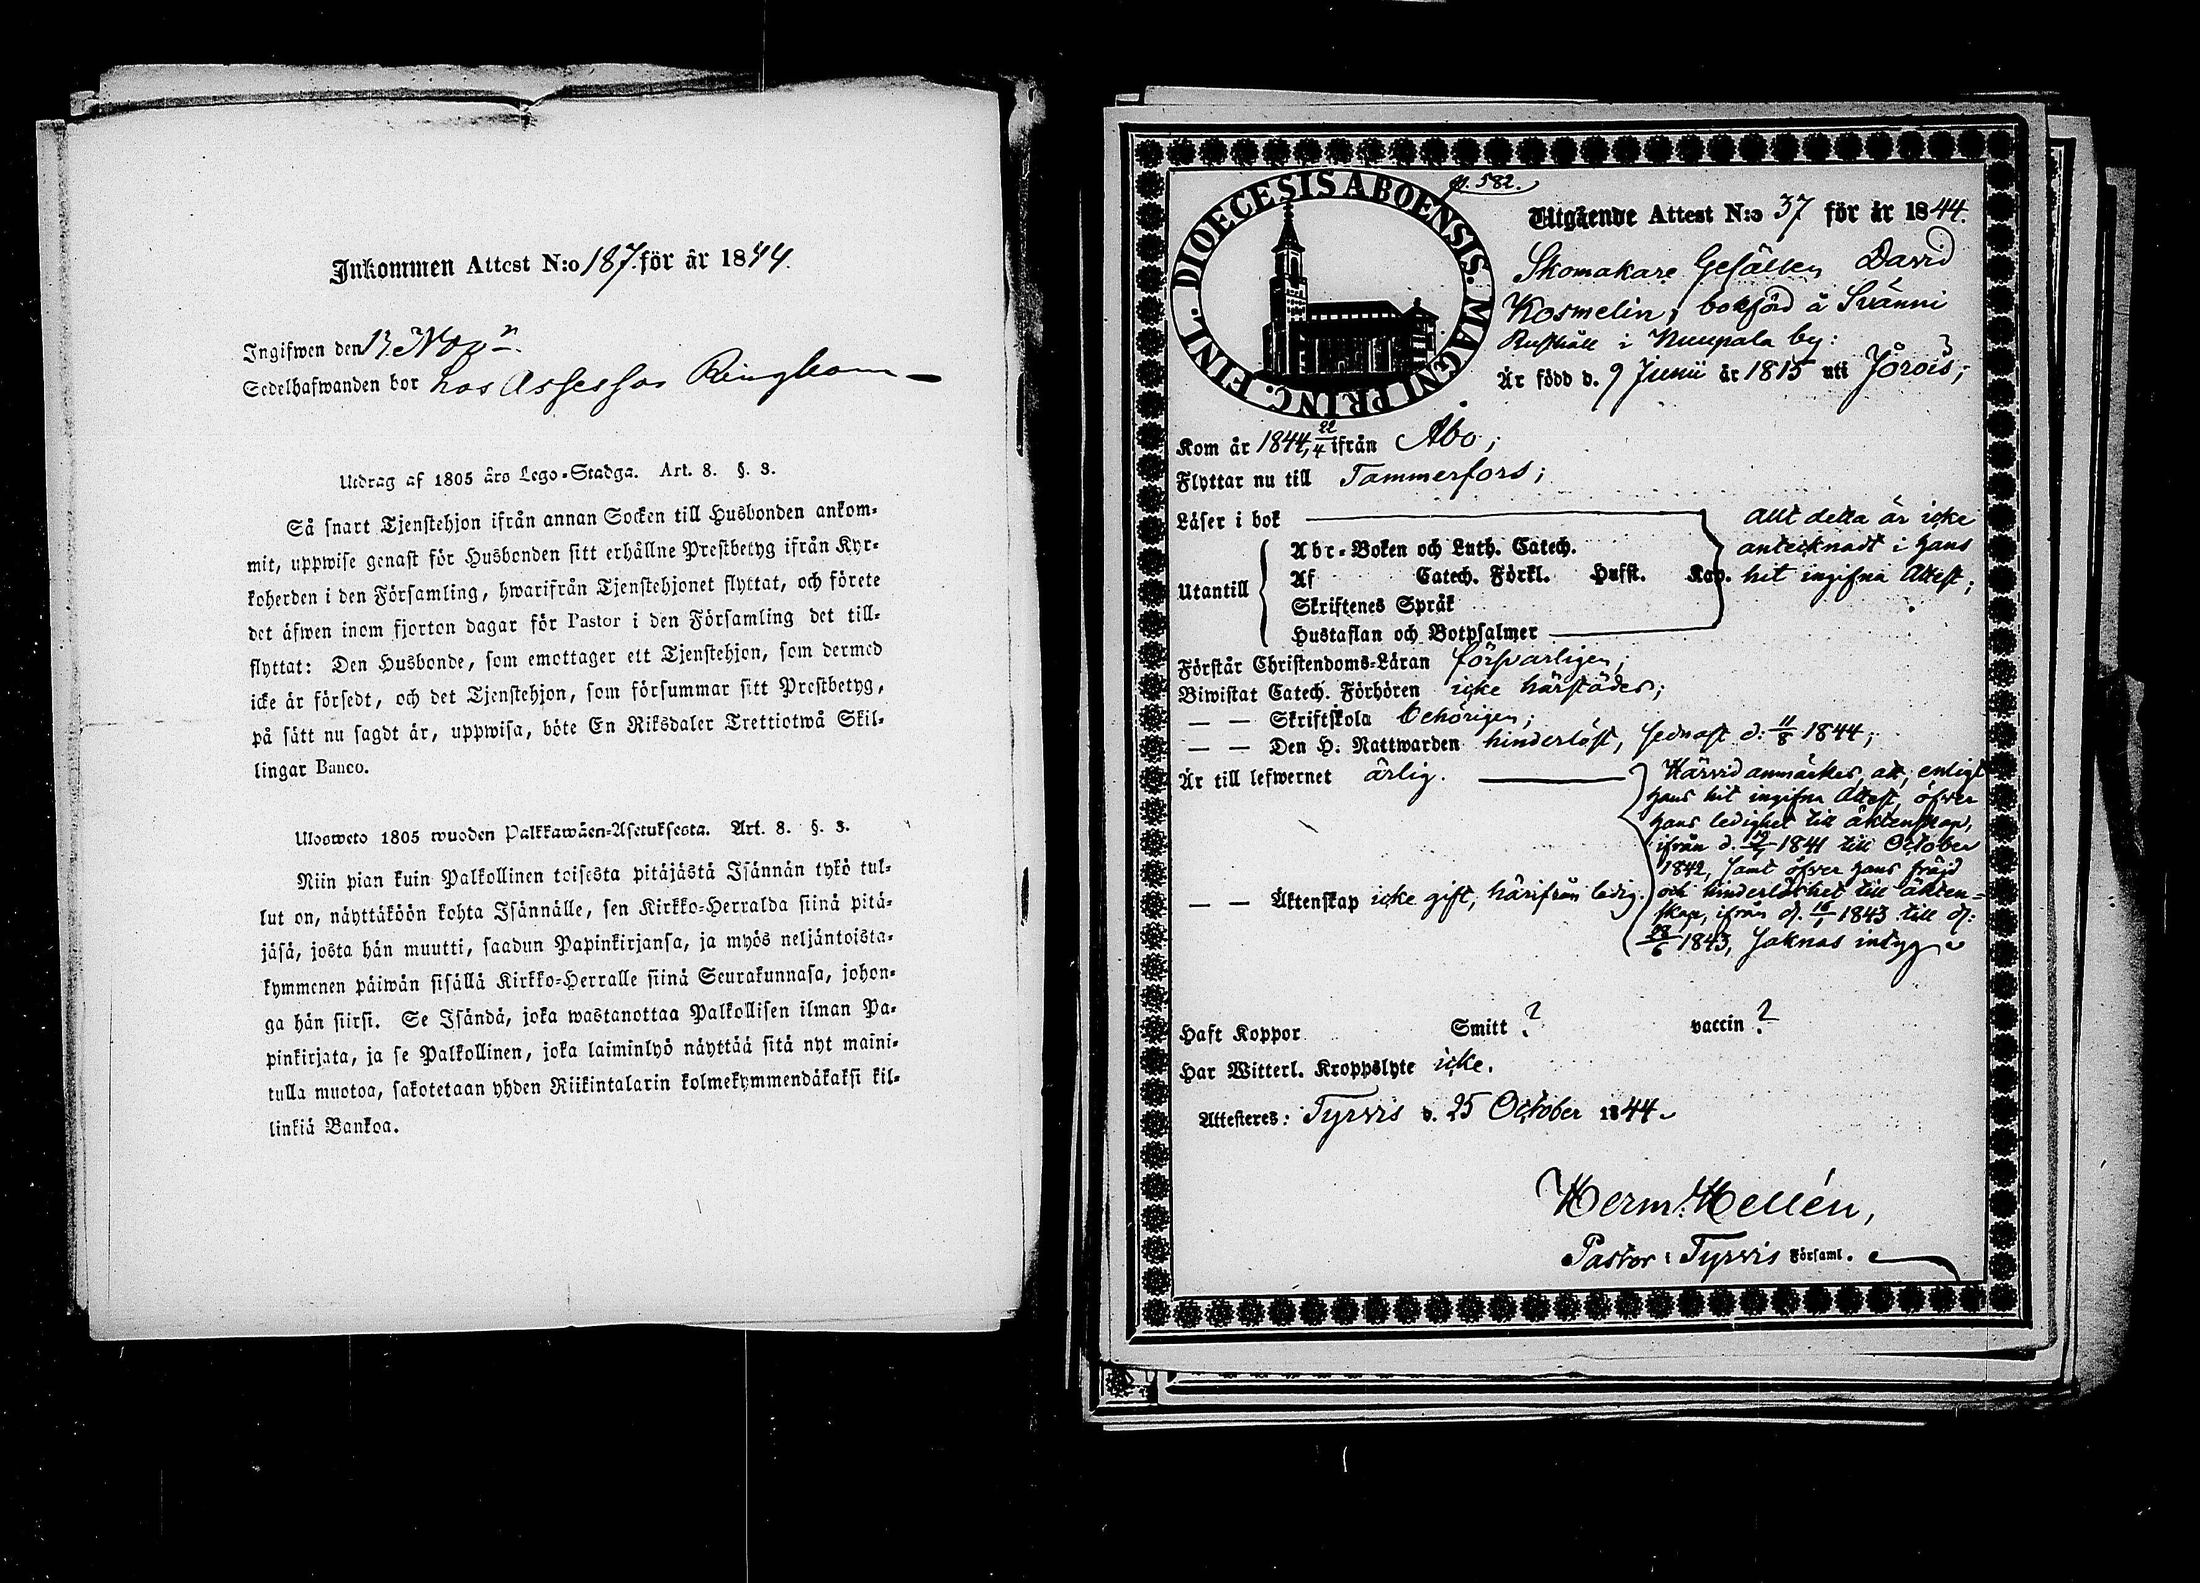 Inkommen Attest N:o 187 för år 1844.
Ingifwen den 13 Nov:r
Sedelhafwanden bor hos Assessor Ringbom
Utdrag af 1805 års Lego-Stadga. Art. 8. §. 3.
Så snart Tjenstehjon ifrån annan Socken till Husbonden ankom-
mit, uppwise genast för Husbonden sitt erhållne Prestbetyg ifrån Kyr-
koherden i den Församling, hwarifrån Tjenstehjonet flyttat, och förete
det äfwen inom fjorton dagar för Pastor i den Församling det till-
flyttat: Den Husbonde, som emottager ett Tjenstehjon, som dermed
icke är försedt, och det Tjenstehjon, som försummar sitt Prestbetyg,
på sätt nu sagdt är, uppwisa, böte En Riksdaler Trettiotwå Skil-
lingar Banco.
Ulosweto 1805 wuoden Palkkawäen-Asetuksesta. Art. 8. §. 3.
Niin pian kuin Palkollinen toisesta pitäjästä Isännän tykö tul-
lut on, näyttäköön kohta Isännälle, sen Kirkko-Herralda siinä pitä-
jäsä, josta hän muutti, saadun Papinkirjansa, ja myös neljäntoista-
kymmenen päiwän sisällä Kirkko-Herralle siinä Seurakunnasa, johon-
ga hän siirsi. Se Isändä, joka wastanottaa Palkollisen ilman Pa-
pinkirjata, ja se Palkollinen, joka laiminlyö näyttää sitä nyt maini-
tulla muotoa, sakotetaan yhden Riikintalarin kolmekymmendäkaksi kil-
linkiä Bankoa.
p. 582.
DIOECESIS ABOENSIS. MAGNI PRINC. FINL.
Utgående Attest N:o 37 för år 1844.
Skomakare Gesällen David
Kosmelin, bokförd å Svänni
Rusthåll i Nuupala by:
Är född d. 9 Junii år 1815 uti Jörois;
Kom år 1844, 22/4 ifrån Åbo;
Flyttar nu till Tammerfors;
Läser i bok
Utantill
Abc-Boken och Luth. Catech.
Af Catech. Förkl. Husst. Kap.
Skriftenes Språk
Hustaflan och Botpsalmer
Allt detta är icke
antecknadt i hans
hit ingifna Attest;
Förstår Christendoms-Läran försvarligen;
Biwistat Catech. Förhören icke härstädes;
— — Skriftskola behörigen;
— — Den H. Nattwarden hinderlöst, sednast d: 11/8 1844;
Är till lefwernet ärlig.
— — Äktenskap icke gift, härifrån ledig.
Härvid anmärkes, att, enligt
hans hit ingifna Attest, öfver
hans ledighet till äktenskap,
ifrån d. 1841 till October
1842, samt öfver hans fräjd
och hinderlöshet till äkten-
skap, ifrån d. 1843 till d:
28/6 1843, saknas intyg
Haft Koppor Smitt ? vaccin ?
Har Witterl. Kroppslyte icke.
Attesteres: Tyrvis d. 25 October 1844.
Herm: Hellén,
Pastor i Tyrvis Församl.